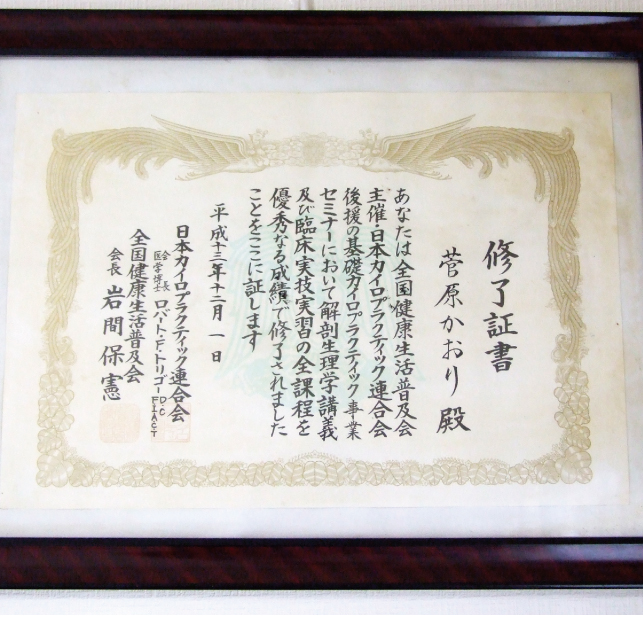 修了証書
菅原かおり殿
あなたは全国健康生活普及会
主催・日本カイロプラクティック連合会
後援の基礎カイロプラクティック事業
セミナーにおいて解剖生理学講義
及び臨床実技実習の全課程を
優秀なる成績で修了されました
ことをここに証します
平成十三年十二月一日
日本カイロプラクティック連合会
会長
医学博士 ロバート・F・トリゴーD.C
FIACT
全国健康生活普及会
会長 岩間保憲